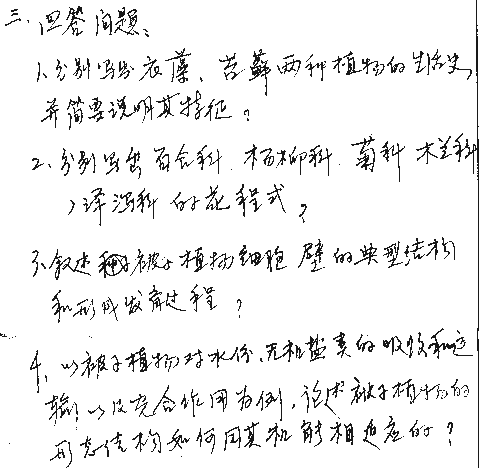 三、回答问题:
1、分别写出衣藻、苔藓两种植物的生活史,
并简要说明其特征?
2、分别写出百合科、杨柳科、菊科、木兰科
、泽泻科的花程式?
3、叙述种子被子植物细胞壁的典型结构
和形成发育过程?
4、以被子植物对水份、无机盐类的吸收和运
输,以及光合作用为例,论述被子植物的
形态结构如何同其机能相适应的?